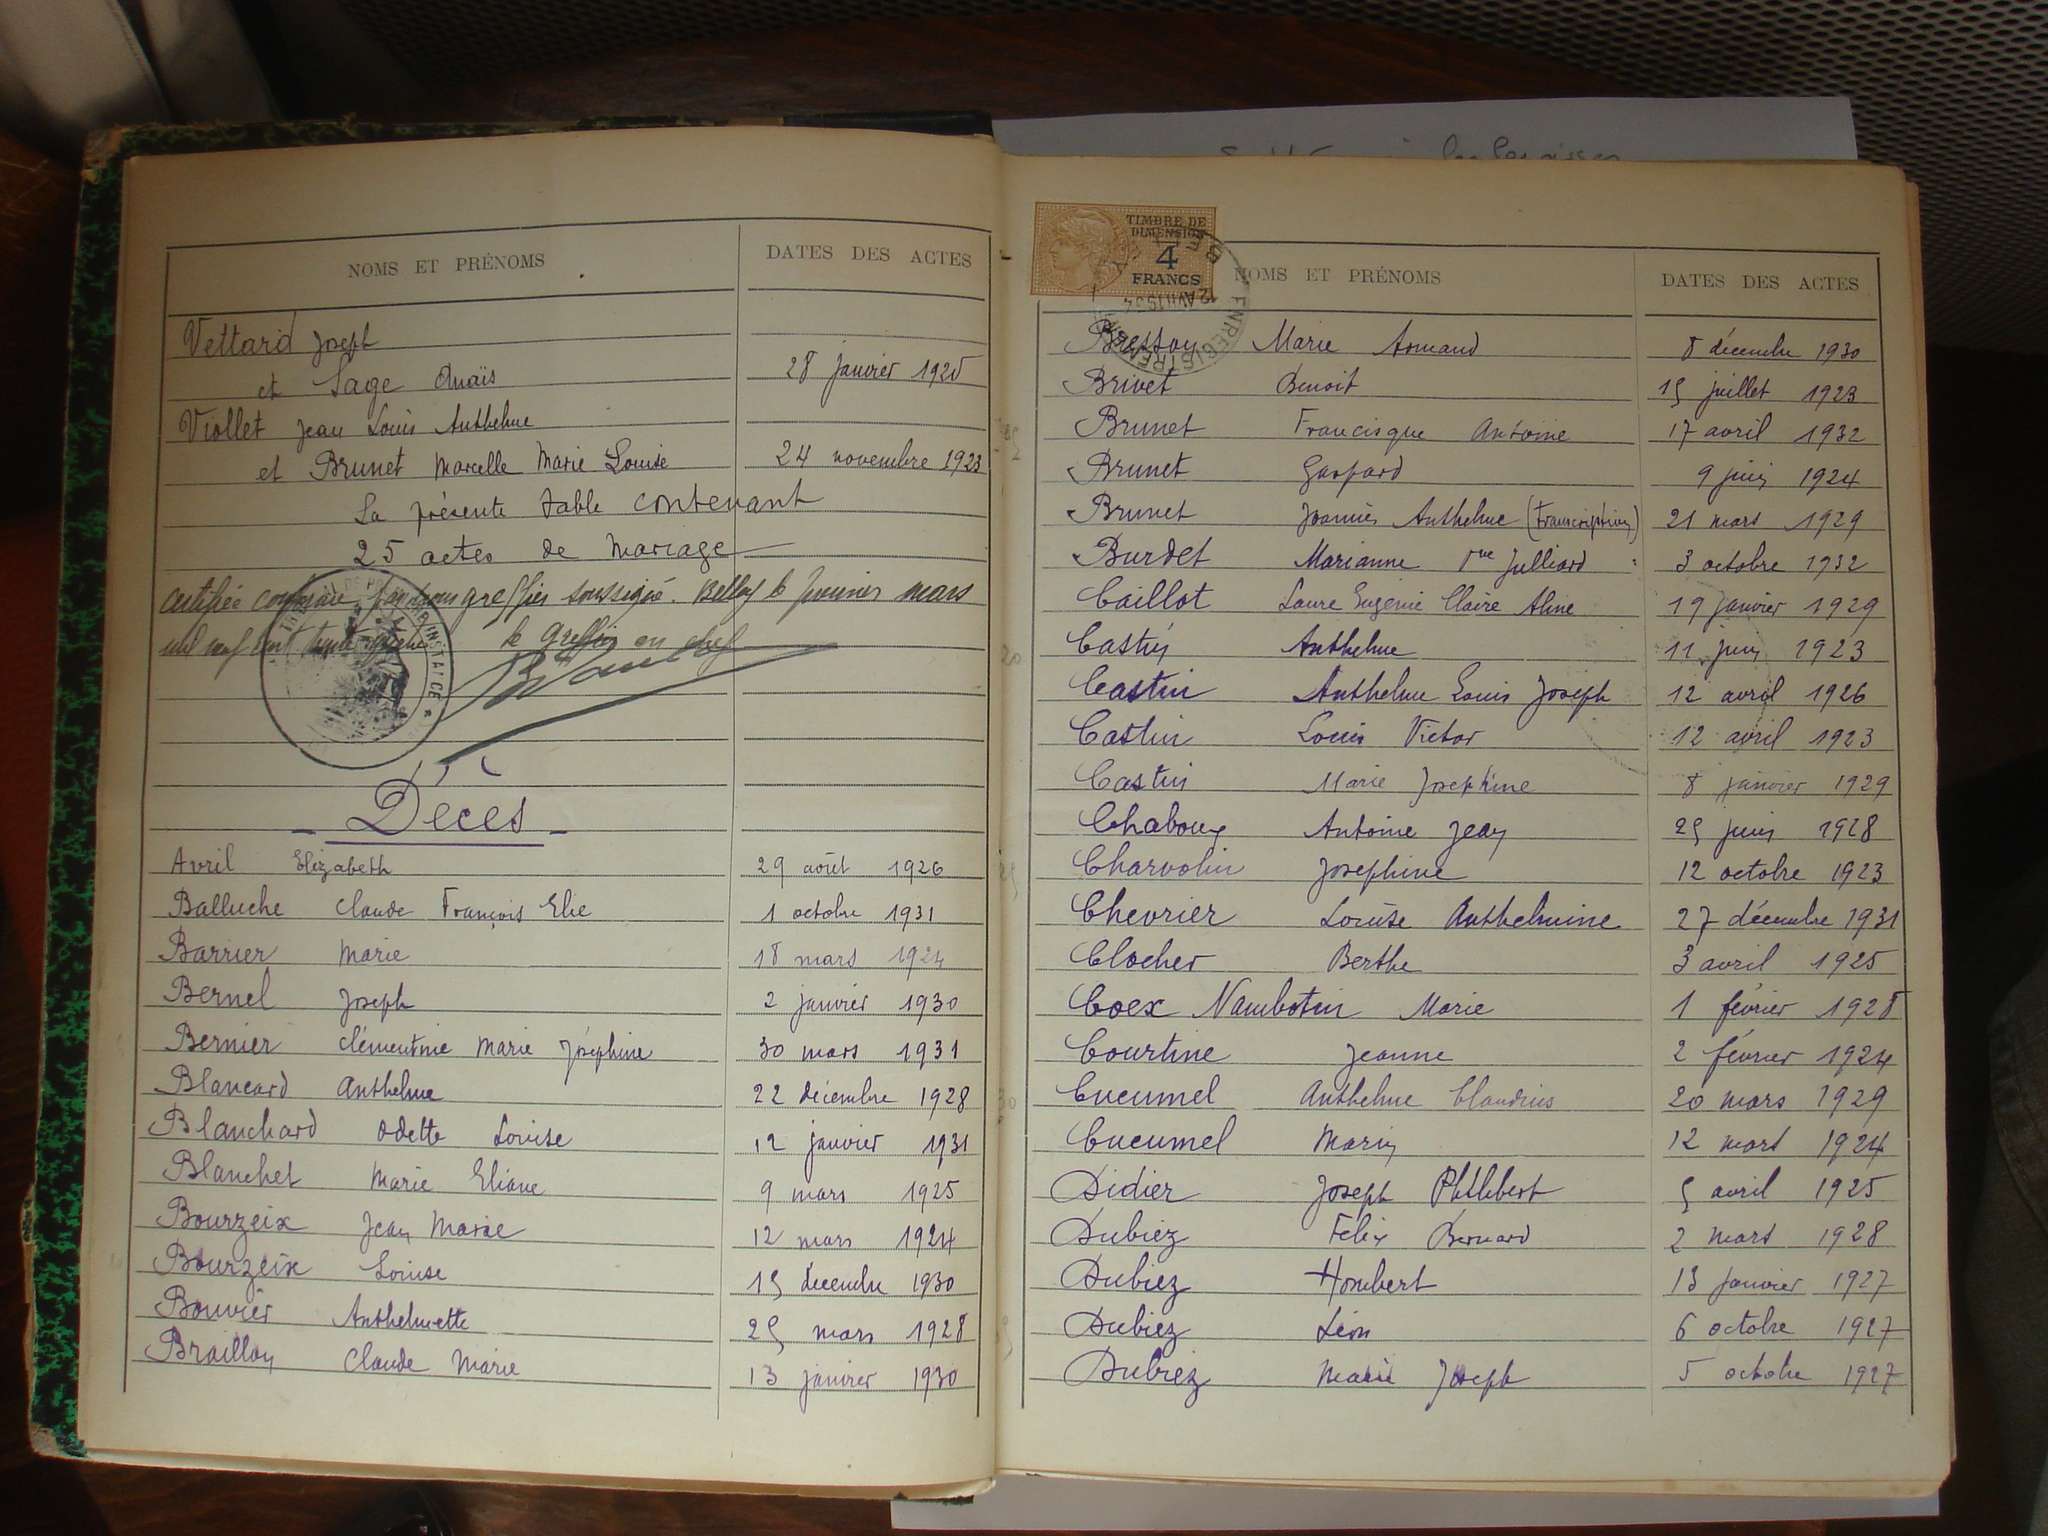 NOMS ET PRÉNOMS DATES DES ACTES
Vettard Joseph
et Sage Anaïs 28 janvier 1925
Viollet Jean Louis Anthelme
et Brunet Marcelle Marie Louise 24 novembre 1923
La présente table contenant
25 actes de Mariage
certifiée conforme par nous greffier soussigné. Belley le premier mars
mil neuf cent trente le greffier en chef
Décès
Avril Elizabeth 29 août 1926
Balluche Claude François Elie 1 octobre 1931
Barrier Marie 18 mars 1924
Bernel Joseph 2 janvier 1930
Bernier Clémentine Marie Joséphine 30 mars 1931
Blancard Anthelme 22 décembre 1928
Blanchard Odette Louise 12 janvier 1931
Blanchet Marie Eliane 9 mars 1925
Bourzeix Jean Marie 12 mars 1924
Bourzeix Louise 15 décembre 1930
Bouvier Anthelmette 25 mars 1928
Braillon Claude Marie 13 janvier 1930
TIMBRE DE
DIMENSION
4
FRANCS
ENREGISTREMENT
NOMS ET PRÉNOMS DATES DES ACTES
Marie Armand 8 décembre 1930
Brivet Benoit 15 juillet 1923
Brunet Francisque Antoine 17 avril 1932
Brunet Gaspard 9 juin 1924
Brunet Joannès Anthelme (transcription) 21 mars 1929
Burdet Marianne Vve Julliard 3 octobre 1932
Caillot Laure Eugénie Claire Aline 19 janvier 1929
Castin Anthelme 11 juin 1923
Castin Anthelme Louis Joseph 12 avril 1926
Castin Louis Victor 12 avril 1923
Castin Marie Josephine 8 janvier 1929
Chaboux Antoine Jean 25 juin 1928
Charvolin Josephine 12 octobre 1923
Chevrier Louise Anthelmine 27 décembre 1931
Clocher Berthe 3 avril 1925
Coex Nambotin Marie 1 février 1928
Courtine Jeanne 2 février 1924
Cucumel Anthelme Claudius 20 mars 1929
Cucumel Marin 12 mars 1924
Didier Joseph Philibert 5 avril 1925
Dubiez Félix Bernard 2 mars 1928
Dubiez Humbert 13 janvier 1927
Dubiez Léon 6 octobre 1927
Dubiez Marie Joseph 5 octobre 1927